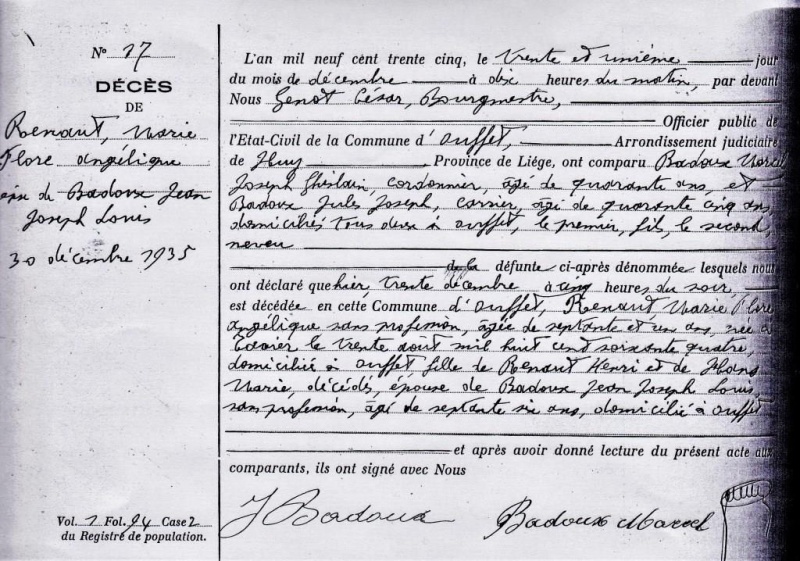 N° 17
DÉCÈS
DE
Renaut, Marie
Flore angélique
épse de Badoux Jean
Joseph Louis
30 décembre 1935
Vol. 1 Fol. 94 Case 2
du Registre de population.
L'an mil neuf cent trente cinq, le trente et unième jour
du mois de décembre à dix heures du matin, par devant
Nous Genot César, Bourgmestre,
Officier public de
l'Etat-Civil de la Commune d'Ouffet, Arrondissement judiciaire
de Huy Province de Liége, ont comparu Badoux Marcel
Joseph Ghislain, cordonnier, âgé de quarante ans, et
Badoux Jules Joseph, carrier, âgé de quarante cinq ans,
domiciliés tous deux à Ouffet, le premier, fils, le second,
neveu
de la défunte ci-après dénommée lesquels nous
ont déclaré que hier, trente décembre à cinq heures du soir,
est décédée en cette Commune d'Ouffet, Renaut Marie Flore
angélique sans profession, âgée de septante et un ans, née à
Tavier le trente août mil huit cent soixante quatre,
domiciliée à Ouffet, fille de Renaut Henri et de
Marie, décédés, épouse de Badoux Jean Joseph Louis
sans profession, âgé de septante six ans, domicilié à Ouffet
et après avoir donné lecture du présent acte aux
comparants, ils ont signé avec Nous
J Badoux
Badoux Marcel